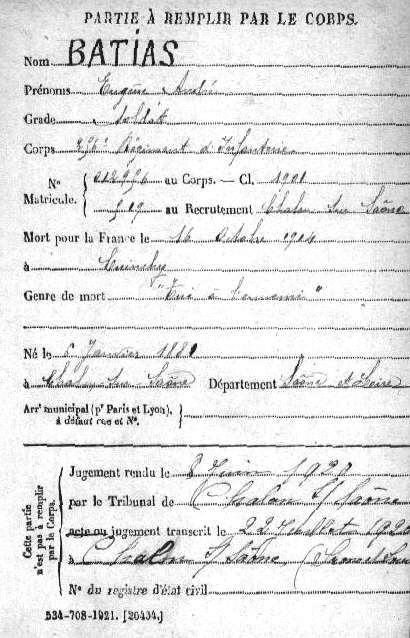 PARTIE À REMPLIR PAR LE CORPS.
Nom BATIAS
Prénoms Eugène André
Grade Soldat
Corps 296e Régiment d'Infanterie
Nº Matricule. 012996 au Corps. — Cl. 1901
909 au Recrutement Chalon sur Saône
Mort pour la France le 16 Octobre 1914
à Cuinchy
Genre de mort "Tué à l'ennemi"
Né le 6 Janvier 1881
à Chalon sur Saône Département Saône et Loire
Arrt municipal (pr Paris et Lyon),
à défaut rue et Nº.
Cette partie n'est pas à remplir par le Corps.
Jugement rendu le 8 Juin 1920
par le Tribunal de Chalon S/ Saône
acte ou jugement transcrit le 22 Juillet 1920
à Chalon S/ Saône (Saone et Loire
Nº du registre d'état civil
534-708-1921. [26434.]